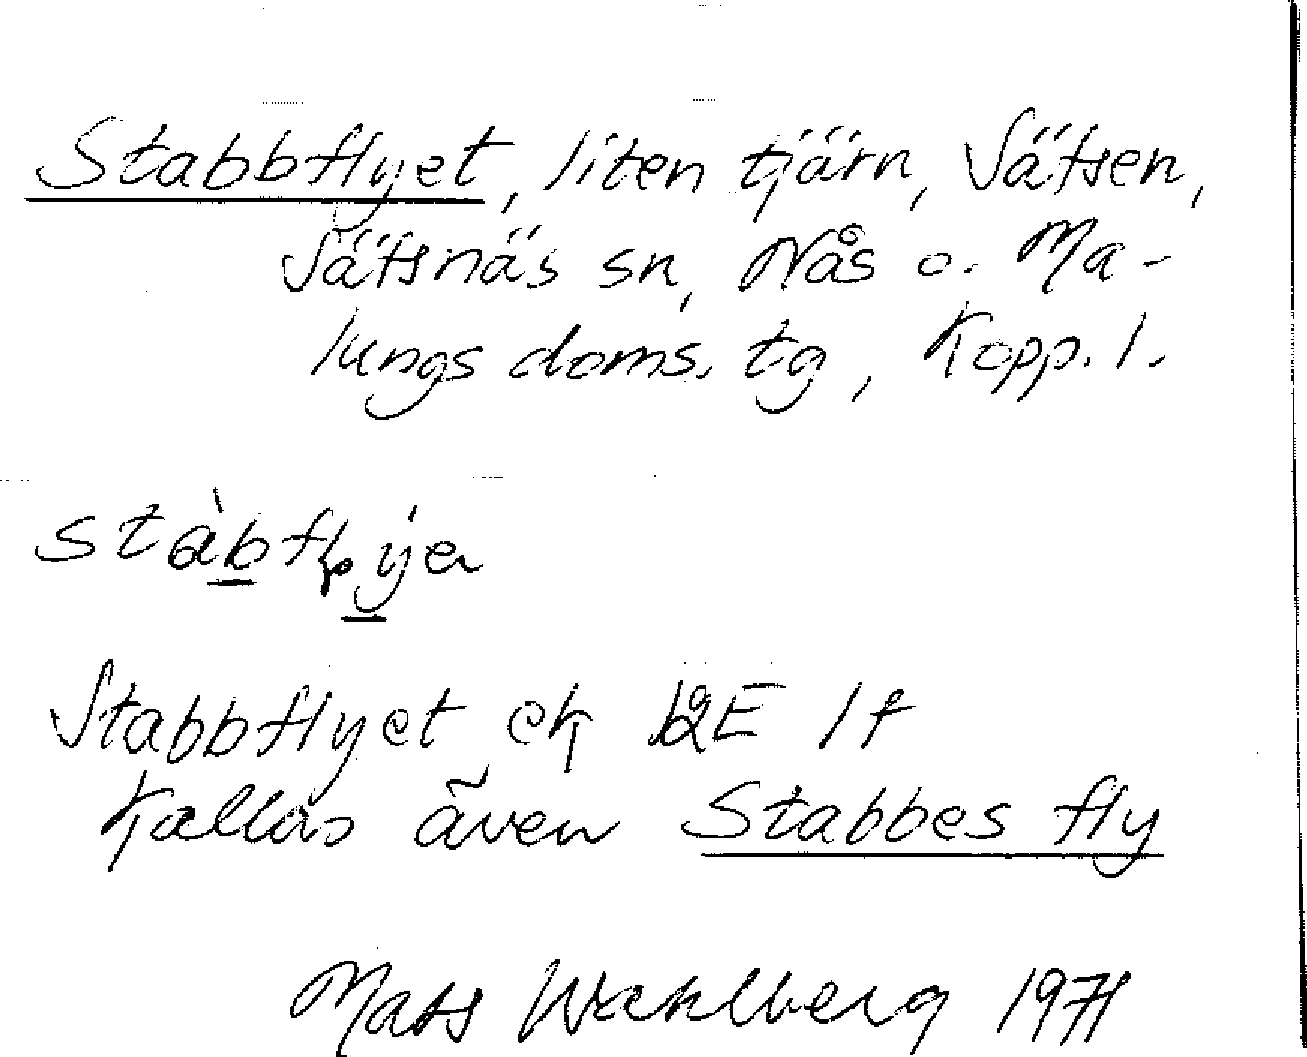 Stabbflyet, liten tjärn, Sätsen,
Sätsnäs sn, Nås o. Ma-
lungs doms. tg, Kopp. l.
Stabbflyet ek
Kallas även Stabbes fly
Mats Wahlberg 1971